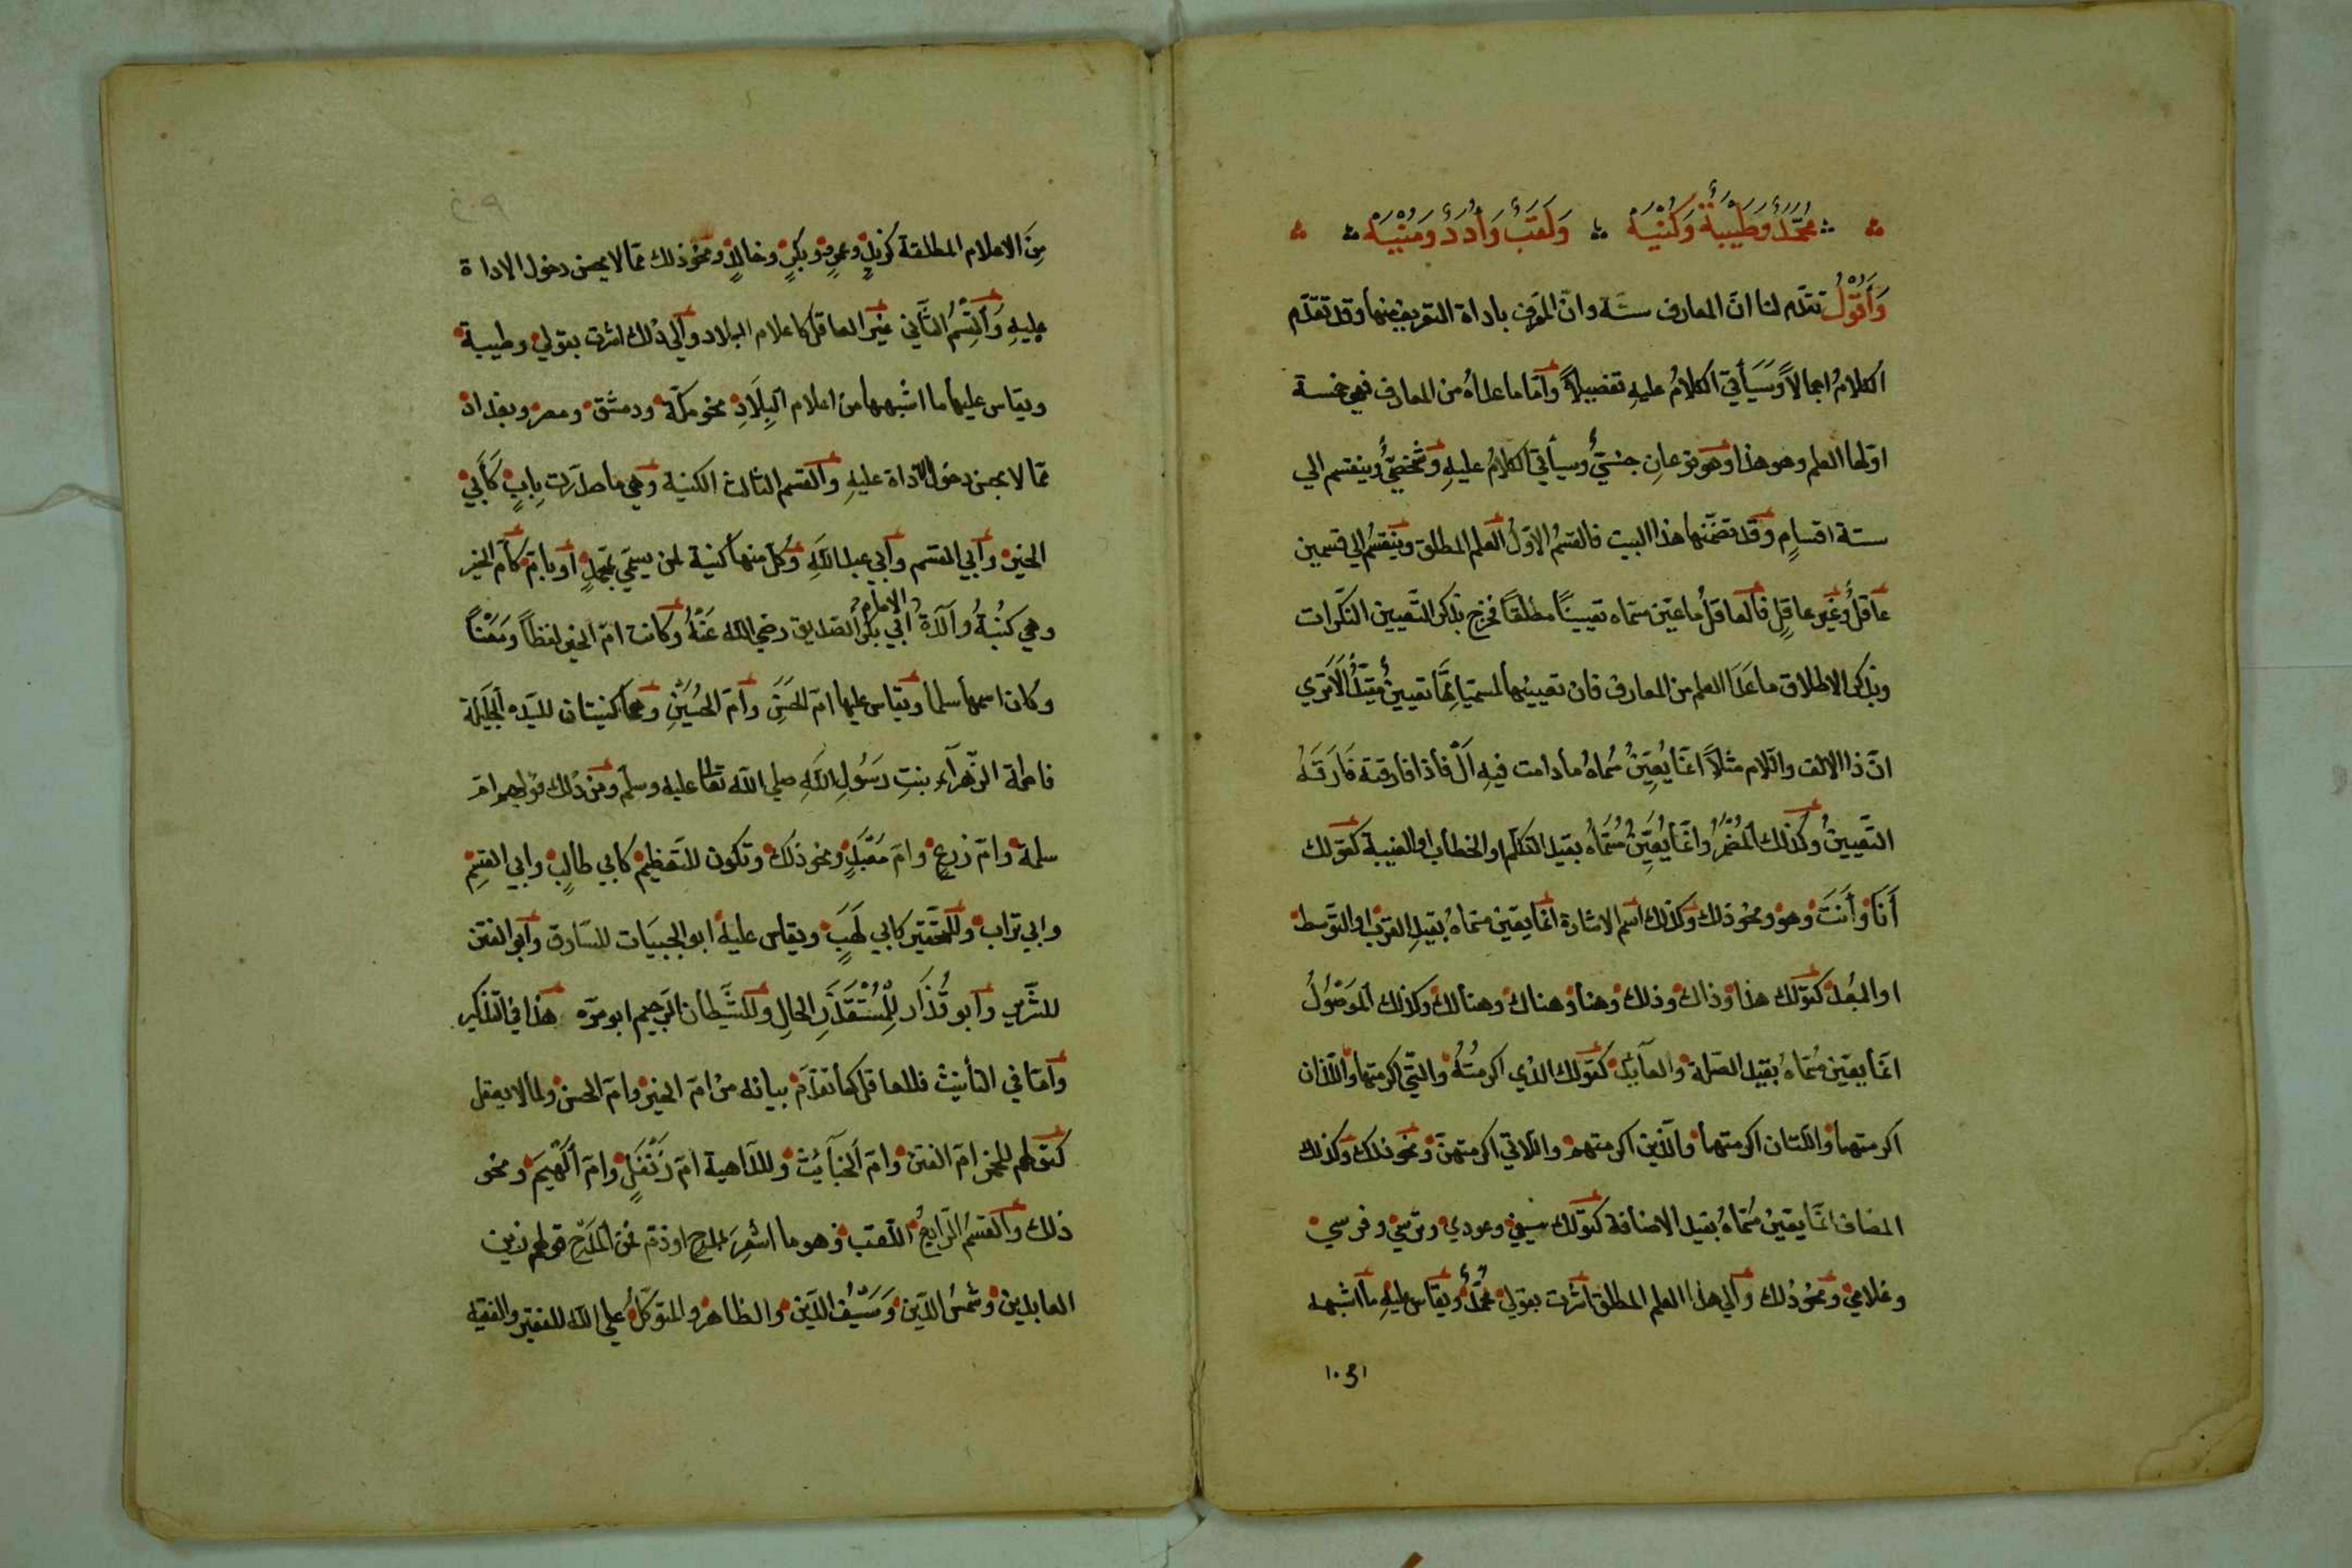 محمد وطيبة وكنية ولقب وأدد ومنبه
وَأَقُولُ تقدم لنا انّ المعارف ستّة وانّ المعرف باداة التعريف منها وقد تقدّم
الكلامُ اجمالاً وَسَيَأتي الكلامُ عليهِ تفصيلاً وأمّا ما عداهُ من المعارف فهي خمسة
اوّلها العلم وهو هذا وهو نوعانِ جنسيٌّ وسيأتي الكلامُ عليهِ وشخصيٌّ وينقسم الي
ستة اقسامٍ وقد تضمّنها هذا البيت فالقسمُ الاوّلُ العلم المطلق وينقسمُ الي قسمين
عاقلٌ وغير عاقلٍ فالعاقلُ ما عيّن مسماه تعيينًا مطلقًا فخرج بذكر التّعيين النّكرات
وبذكر الاطلاق ما عَدَا العلم من المعارف فان تعيينها لمسمّياتِها تعيينٌ مقيّدٌ ألَا تَرَي
انّ ذا الالف والّلام مثلاً انمّا يُعيّنُ مُسماهُ ما دامت فيهِ اَلْ فاذا فارقته فَارَقَهُ
التّعيينُ وكذلك المُضْمَرُ وانمّا يُعَيّنُ مُسَمّاهُ بقيد التكلّم او الخطاب او الغيبة كقولك
أَنَا وأَنتَ وهو ونحو ذلك وكذلك اسم الاشارة انمّا يعيّن مسماهُ بقيدِ القرب او التوسط
او البُعْد كقولك هذا وذاك وذلك وهنا وهناك وهنالك وكذلك المَوصُولُ
انمّا يعيّن مُسمّاهُ بقيد الصّلة والعآئد كقولك الذي اكرمتُهُ والتّي اكرمتها واللّذان
اكرمتهما واللّتان اكرمتهما والّذين اكرمتهم واللّاتي اكرمتهنّ ونحو ذلك وكذلك
المضاف انمّا يعيّن مُسمّاهُ بقيد الاضافة كقولك سيفي وعودي وترسي وفرسي
وغلامي ونحو ذلك والي هذا العلم المطلق اشرت بقولي محمّدٌ ويقاس عليهِ ما اشبهه
مِنَ الاعلام المطلقة كزيدٍ وعمرٍو وبكرٍ وخالدٍ ونحو ذلك ممّا لا يحسن دخول الاداة
عليهِ وَالقِسْمُ الثّاني غيرَ العاقل كاعلام البلاد والي ذلك اشرت بقولي وطيبة
ويقاس عليها ما اشبهها من اعلام البِلَادِ نحو مكّة ودمشق ومصر وبغداد
ممّا لا يحسن دخول الاداة عليهِ والقسم الثالث الكنية وهي ما صدّرت بِابٍ كَأَبي
الخير وأبي القسم وأبي عبد اللهِ وكُل منها كنية لمن يسمّي بمحمدٍ أو بامّ كأم الخير
وهي كنيةُ وآلدة الامام أبي بكر الصديق رضي الله عَنْهُ وكانت امّ الخير لفظاً ومَعْناً
وكان اسمها سلما ويقاس عليها امّ الحَسَنِ وأمّ الحُسَيْنِ وهما كنيتان للسيّده الجَليَلة
فاطمة الزّهرآء بنتِ رَسُولِ اللهِ صلي الله تعا عليه وسلم ومن ذلك قولهم امّ
سلمة وامّ زرعٍ وامّ مَعْبَدٍ ونحو ذلك وتكون للتعظيم كابي طالبٍ وابي القسِم
وابي تراب وللتّحقير كابي لَهَبٍ ويقاس عليه ابو الجبيَات للسّارق وأبو الفتن
للشّرّير وأبو قُذَار لِلْمُسْتَقْذَرِ الحالِ وللشَّيطان الرّجيم ابو مرّه هذا في التّذكير
وأمّا في التأنيث فللعاقل كما تقدّم بيانه من امّ الخير وامّ الحسن ولما لا يعقل
كقولهم للخمر امّ الفتن وامّ الخبآئث وللدّاهية أمّ زَنْفَلٍ وامّ اللُّهَيم ونحو
ذلك والقسمُ الرّابعُ اللّقب وهو ما أشْعَرَ بمدحٍ او ذمّ فمن المَدْحِ قولهم زين
العابدين وشمسُ الدّين وَسَيْفُ الدّين والظاهر والمتوكّلُ علي الله للفقير والفقيه